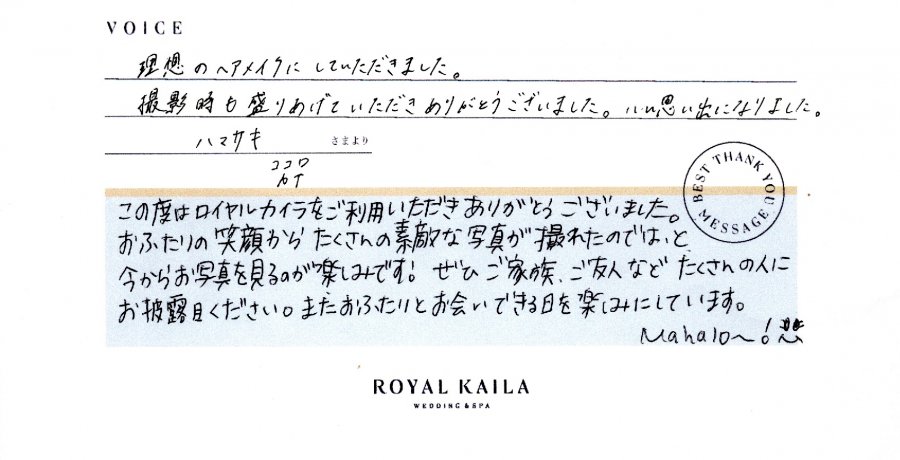 VOICE
理想のヘアメイクにしていただきました。
撮影時も盛りあげていただきありがとうございました。いい思い出になりました。
ハマサキ さまより
ココロ
カナ
BEST THANK YOU MESSAGE
この度はロイヤルカイラをご利用いただきありがとうございました。
おふたりの笑顔からたくさんの素敵な写真が撮れたのでは、と
今からお写真を見るのが楽しみです! ぜひご家族、ご友人などたくさんの人に
お披露目ください。またおふたりとお会いできる日を楽しみにしています。
Mahalo〜!
ROYAL KAILA
WEDDING & SPA